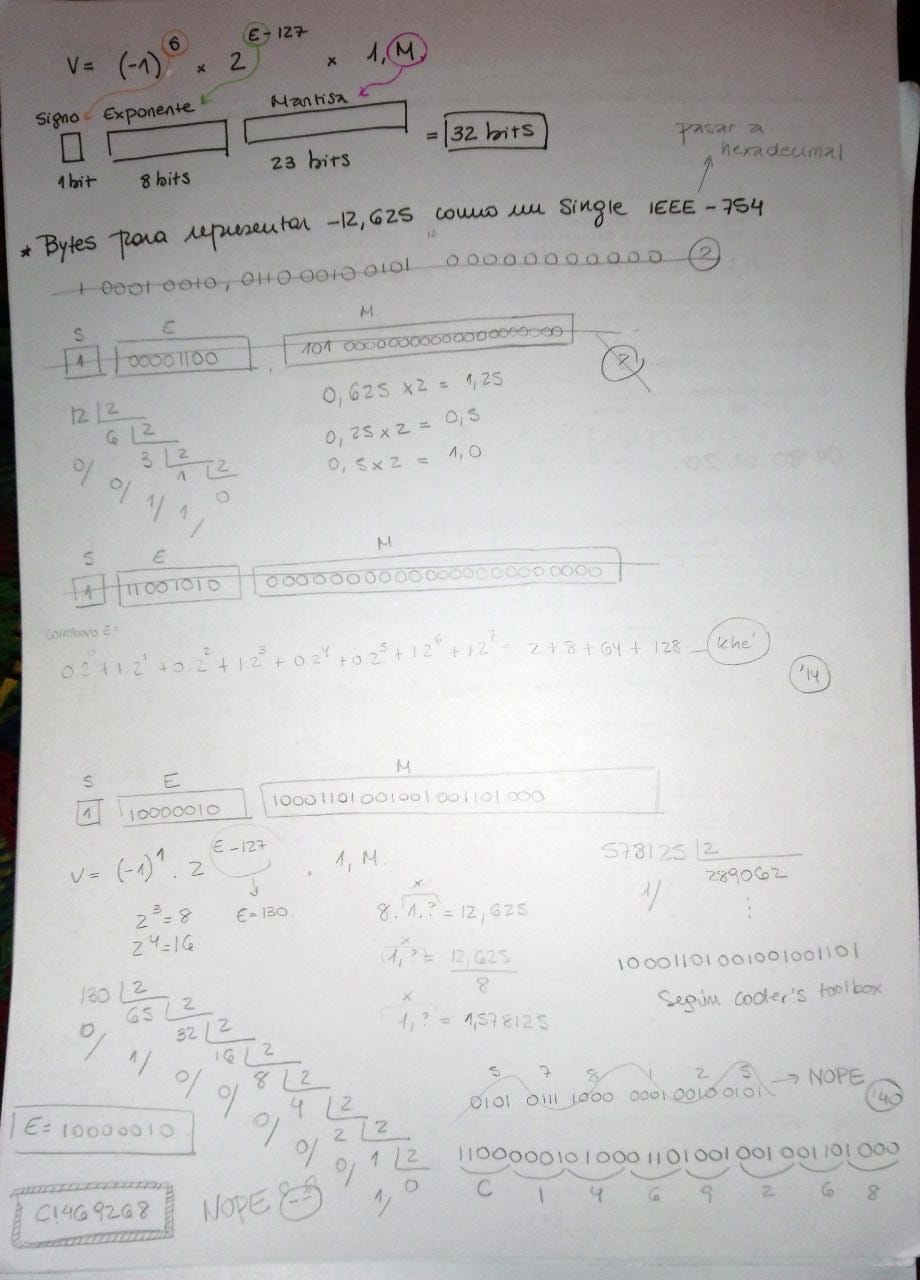 V = (-1)^6 × 2^E-127 × 1,M
Signo Exponente Mantisa
= 32 bits
1bit 8bits 23 bits
pasar a
hexadecimal
* Bytes para representar -12,625 como un Single IEEE-754
12
1 00010010, 011000100101 000000000000 ?
S E M
1 00001100 , 101 00000000000000000000 ?
12 |2
6 |2
3 |2
1 |2
0/ 0/ 1/ 1/ 0
0,625 x2 = 1,25
0,25x2 = 0,5
0,5x2 = 1,0
S E M
1 11001010 00000000000000000000000
Corroboro E:
0.2^0+1.2^1+0.2^2+1.2^3+0.2^4+0.2^5+1.2^6+1.2^7 = 2+8+64+128 khé
'14
S E M
1 10000010 10001101001001001101000
V= (-1)^1 . 2^E-127 . 1,M.
2^3=8 E=130
2^4=16
x
8.1.? = 12,625
x
1,? = 12,625
8
x
1,? = 1,578125
578125 |2
1/ 289062
⋮
10001101001001001101
Según coder's toolbox
130 |2
65 |2
32 |2
16 |2
8 |2
4 |2
2 |2
1 |2
0/ 1/ 0/ 0/ 0/ 0/ 0/ 1/ 0
5 7 8 1 2 5 → NOPE
0101 0111 1000 0001 0010 0101
'40
E= 10000010
11000001010001101001001001101000
C 1 4 6 9 2 6 8
C1469268 NOPE